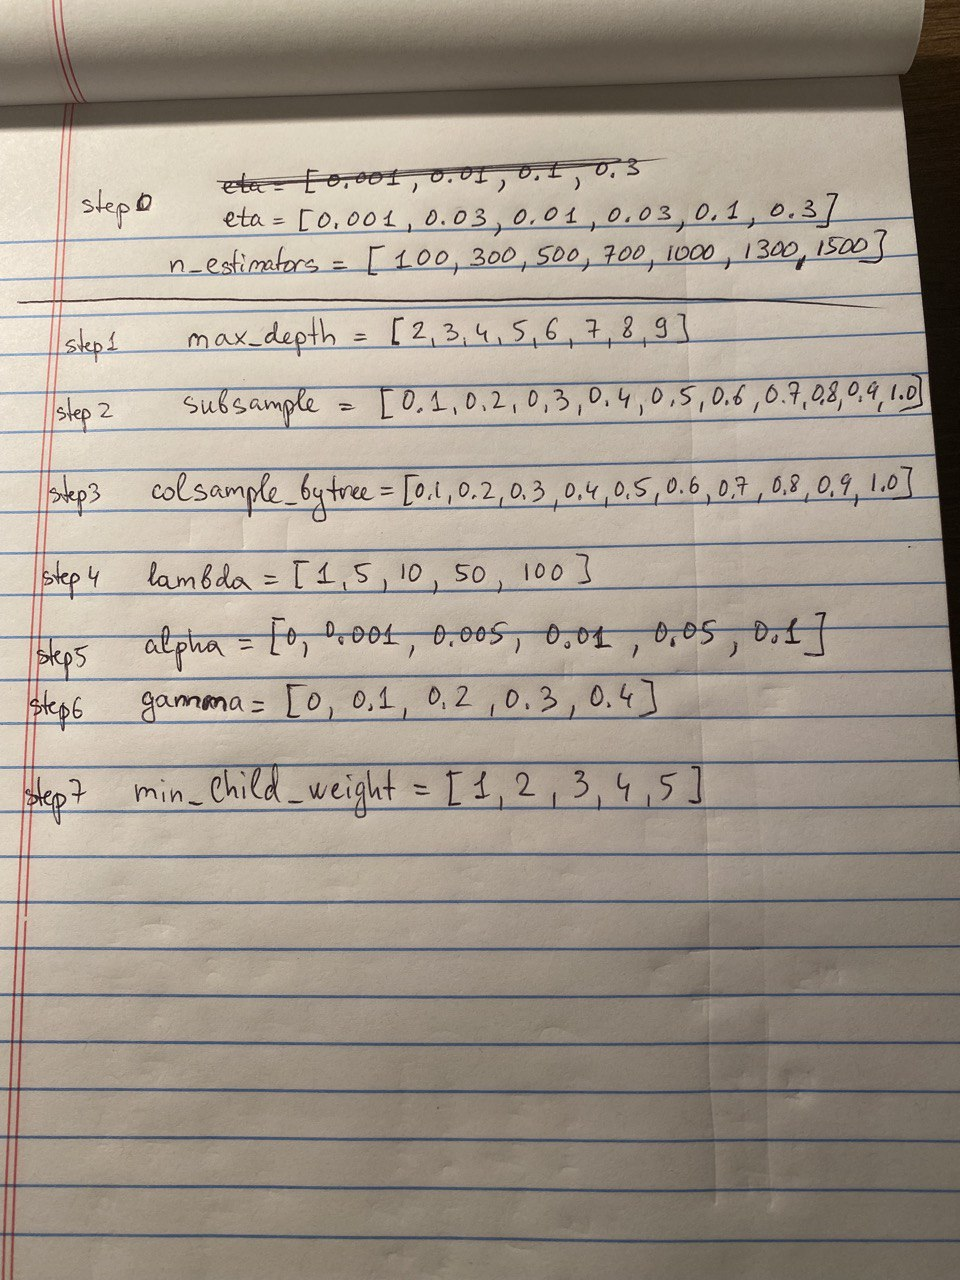 eta = [0.001, 0.01, 0.1, 0.3
step 0 eta = [0.001, 0.03, 0.01, 0.03, 0.1, 0.3]
n_estimators = [100, 300, 500, 700, 1000, 1300, 1500]
step1 max_depth = [2, 3, 4, 5, 6, 7, 8, 9]
step 2 subsample = [0.1, 0.2, 0.3, 0.4, 0.5, 0.6, 0.7, 0.8, 0.9, 1.0]
step3 colsample_bytree = [0.1, 0.2, 0.3, 0.4, 0.5, 0.6, 0.7, 0.8, 0.9, 1.0]
step 4 lambda = [1, 5, 10, 50, 100]
step5 alpha = [0, 0.001, 0.005, 0.01, 0.05, 0.1]
step6 gamma = [0, 0.1, 0.2, 0.3, 0.4]
step7 min_child_weight = [1, 2, 3, 4, 5]